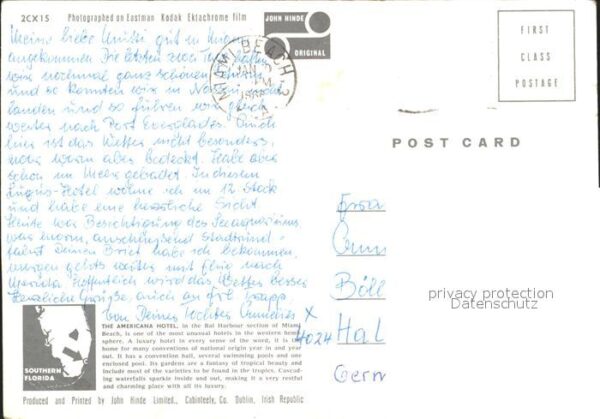 2CX15 Photographed on Eastman Kodak Ektachrome film
JOHN HINDE
ORIGINAL
Meine liebe Mutti gut in
angekommen. Die letzten zwei
wir nochmal ganz schönen
und so konnten wir in Nassau nicht
landen und so fuhren wir gleich
weiter nach Port Everglades. Auch
hier ist das Wetter nicht besonders,
zwar warm aber bedeckt. Habe aber
schon im Meer gebadet. In diesem
Luxus-Hotel wohne ich im 12 Stock
und habe eine herrliche Sicht.
Heute war Besichtigung des Seaquariums
war enorm, anschließend Stadtrund-
fahrt. Deinen Brief habe ich bekommen,
morgen gehts weiter mit Flug nach
Hoffentlich wird das Wetter besser
Herzliche Grüße auch an
von Deiner Tochter Annelies
MIAMI BEACH
JAN
PM
FIRST
CLASS
POSTAGE
POST CARD
Frau
Böll
4024 Hal
Germ
privacy protection
Datenschutz
SOUTHERN
FLORIDA
THE AMERICANA HOTEL, in the Bal Harbour section of Miami
Beach, is one of the most unusual hotels in the western hemi-
sphere. A luxury hotel in every sense of the word, it is the
home for many conventions of national origin year in and year
out. It has a convention hall, several swimming pools and one
enclosed pool. Its gardens are a fantasy of tropical beauty and
include most of the varieties to be found in the tropics. Cascad-
ing waterfalls sparkle inside and out, making it a very restful
and charming place with all its luxury.
Produced and Printed by John Hinde Limited., Cabinteely, Co. Dublin, Irish Republic